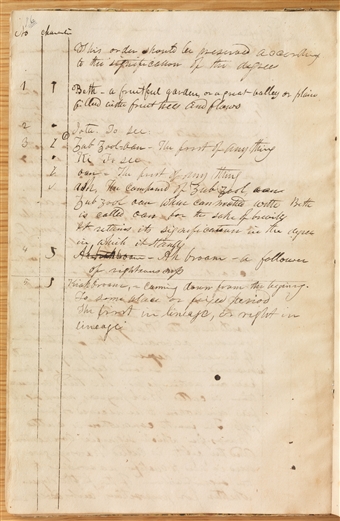 No character
This order should be preserved according
to the signification of the degrees
1 Beth - a fruitful garden or a great valley or plain
filled with fruit trees and flowers
2 Iota To see
3 Zub Zool oan - The first of anything
To see
oan - The first of any thing
the compound of Zub Zool oan
Zub Zool oan when connected with Beth
is called oan for the sake of brevity
it retains its signification in the degree
in which it stands
4 Ah broam - a follower
of righteousness
5 coming down from the beginning
To some place or fixed period
The first in lineage, or right in
lineage